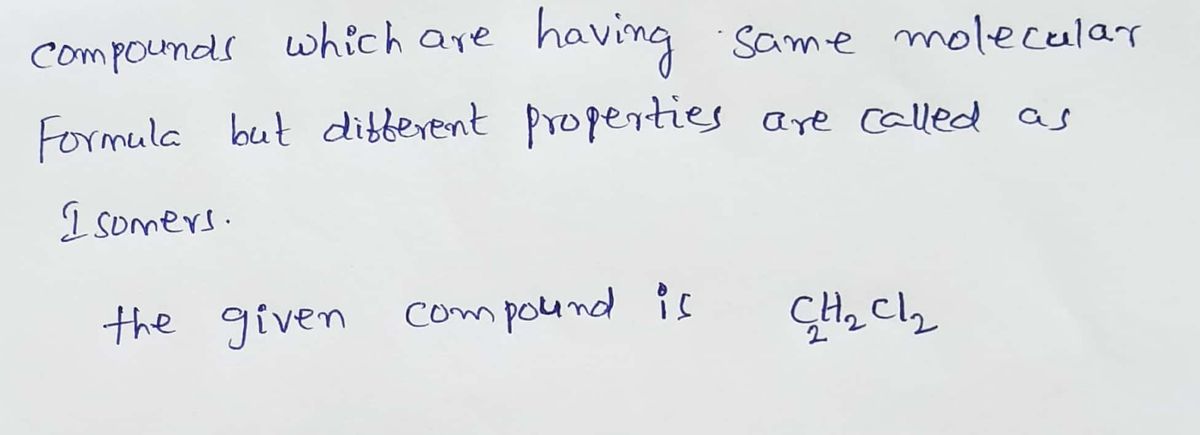 compounds which are having same molecular
Formula but different properties are called as
Isomers.
the given compound is C₂H₂Cl₂